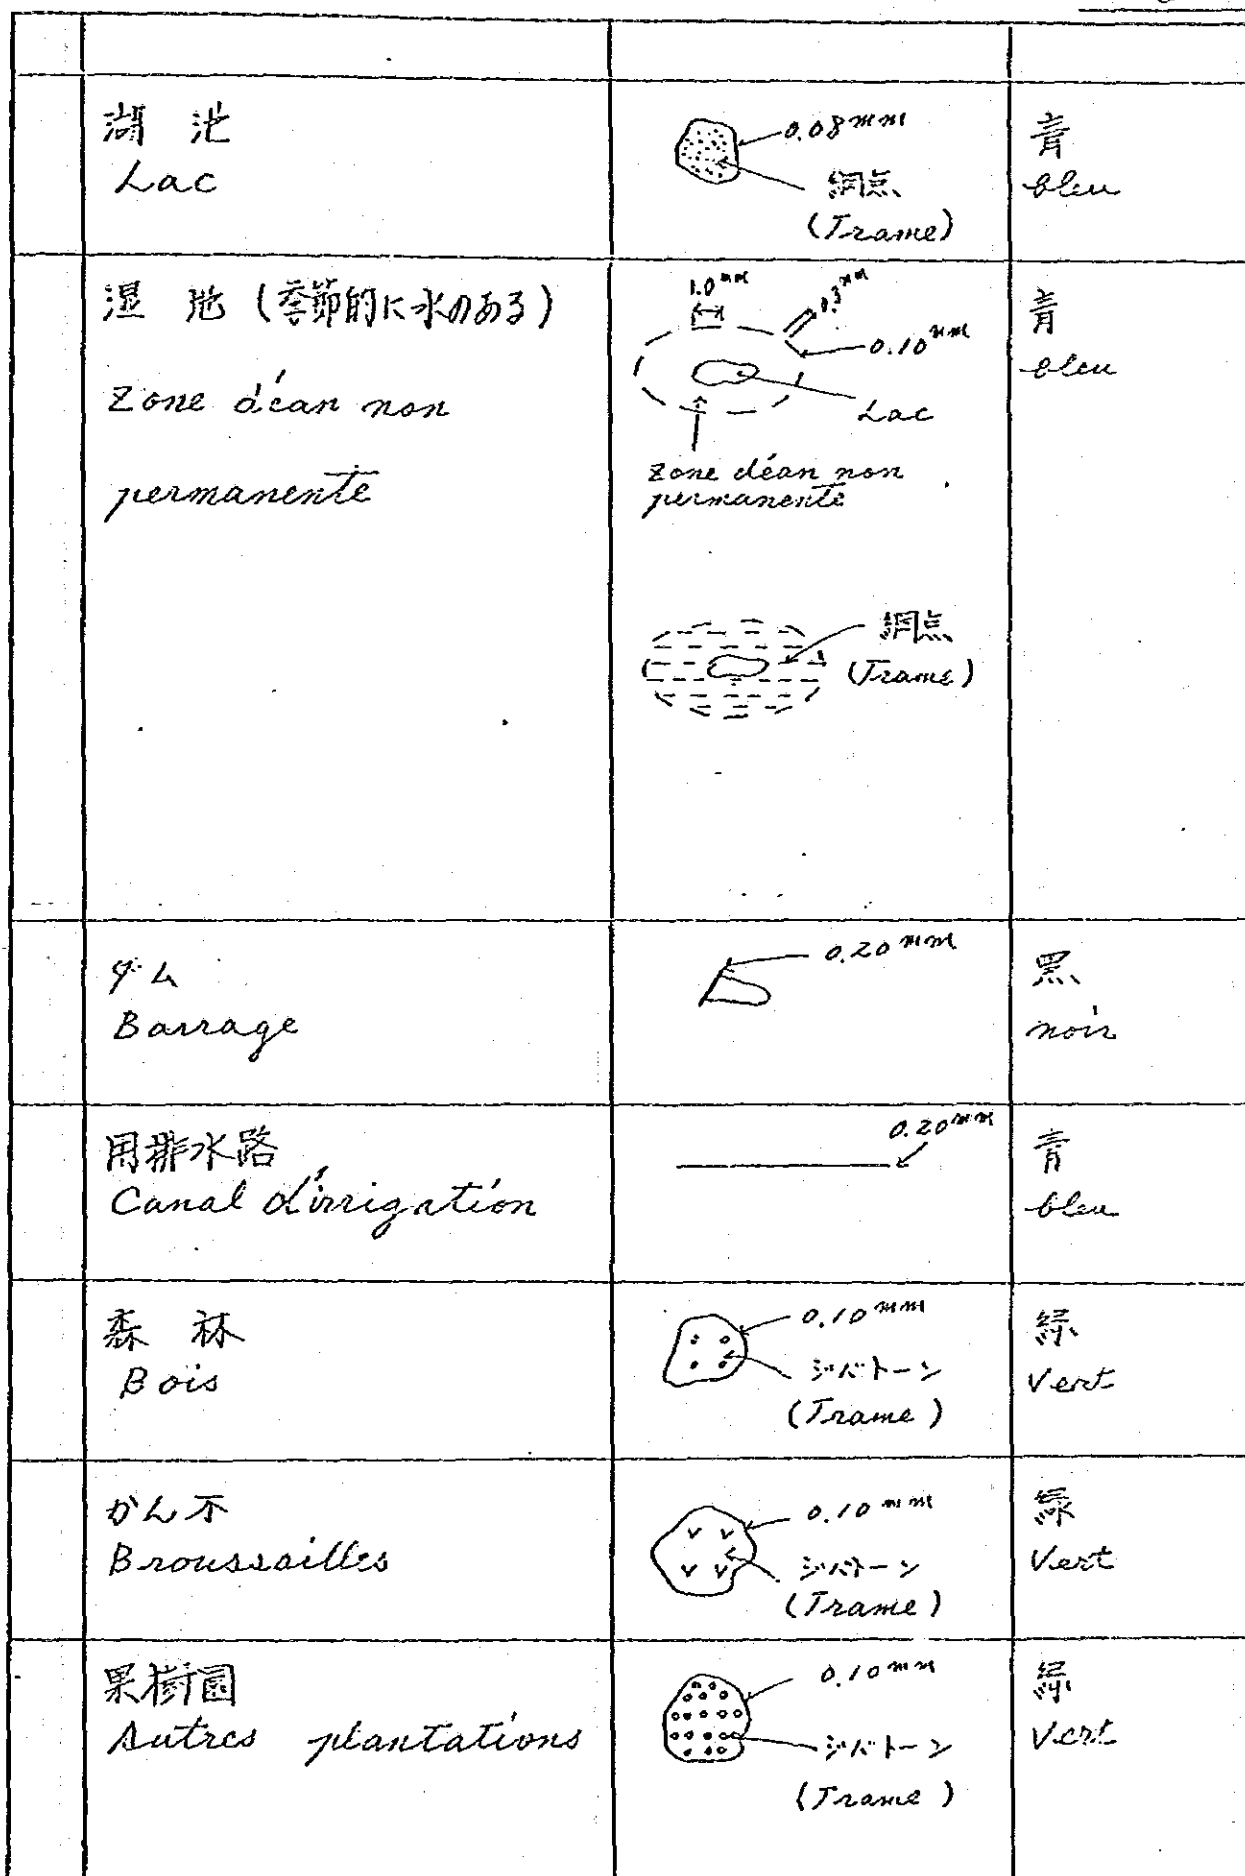 湖 池
Lac
0.08mm
網点
(Trame)
青
bleu
湿 地 (季節的に水のある)
Zone d'éan non
permanente
1.0mm
0.3mm
0.10mm
Lac
zone d'éan non
permanente
網点
(Trame)
青
bleu
ダム
Barrage
0.20mm
黒
noir
用排水路
Canal d'irrigation
0.20mm
青
bleu
森 林
Bois
0.10mm
ジパトーン
(Trame)
緑
Vert
かん木
Broussailles
0.10mm
ジパトーン
(Trame)
緑
Vert
果樹園
Autres plantations
0.10mm
ジパトーン
(Trame)
緑
Vert